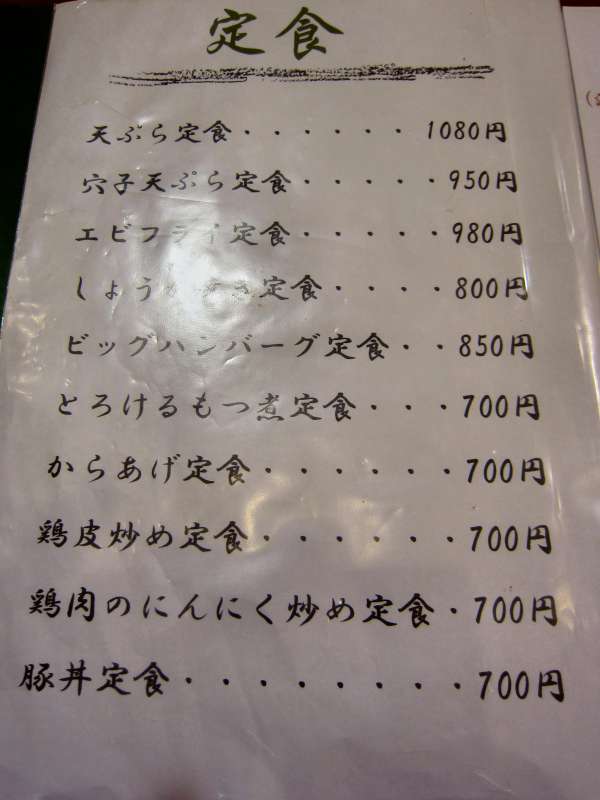 定食
天ぷら定食・・・・・・1080円
穴子天ぷら定食・・・・・950円
エビフライ定食・・・・・980円
しょうが焼き定食・・・・800円
ビッグハンバーグ定食・・850円
とろけるもつ煮定食・・・700円
からあげ定食・・・・・・700円
鶏皮炒め定食・・・・・・700円
鶏肉のにんにく炒め定食・700円
豚丼定食・・・・・・・・700円